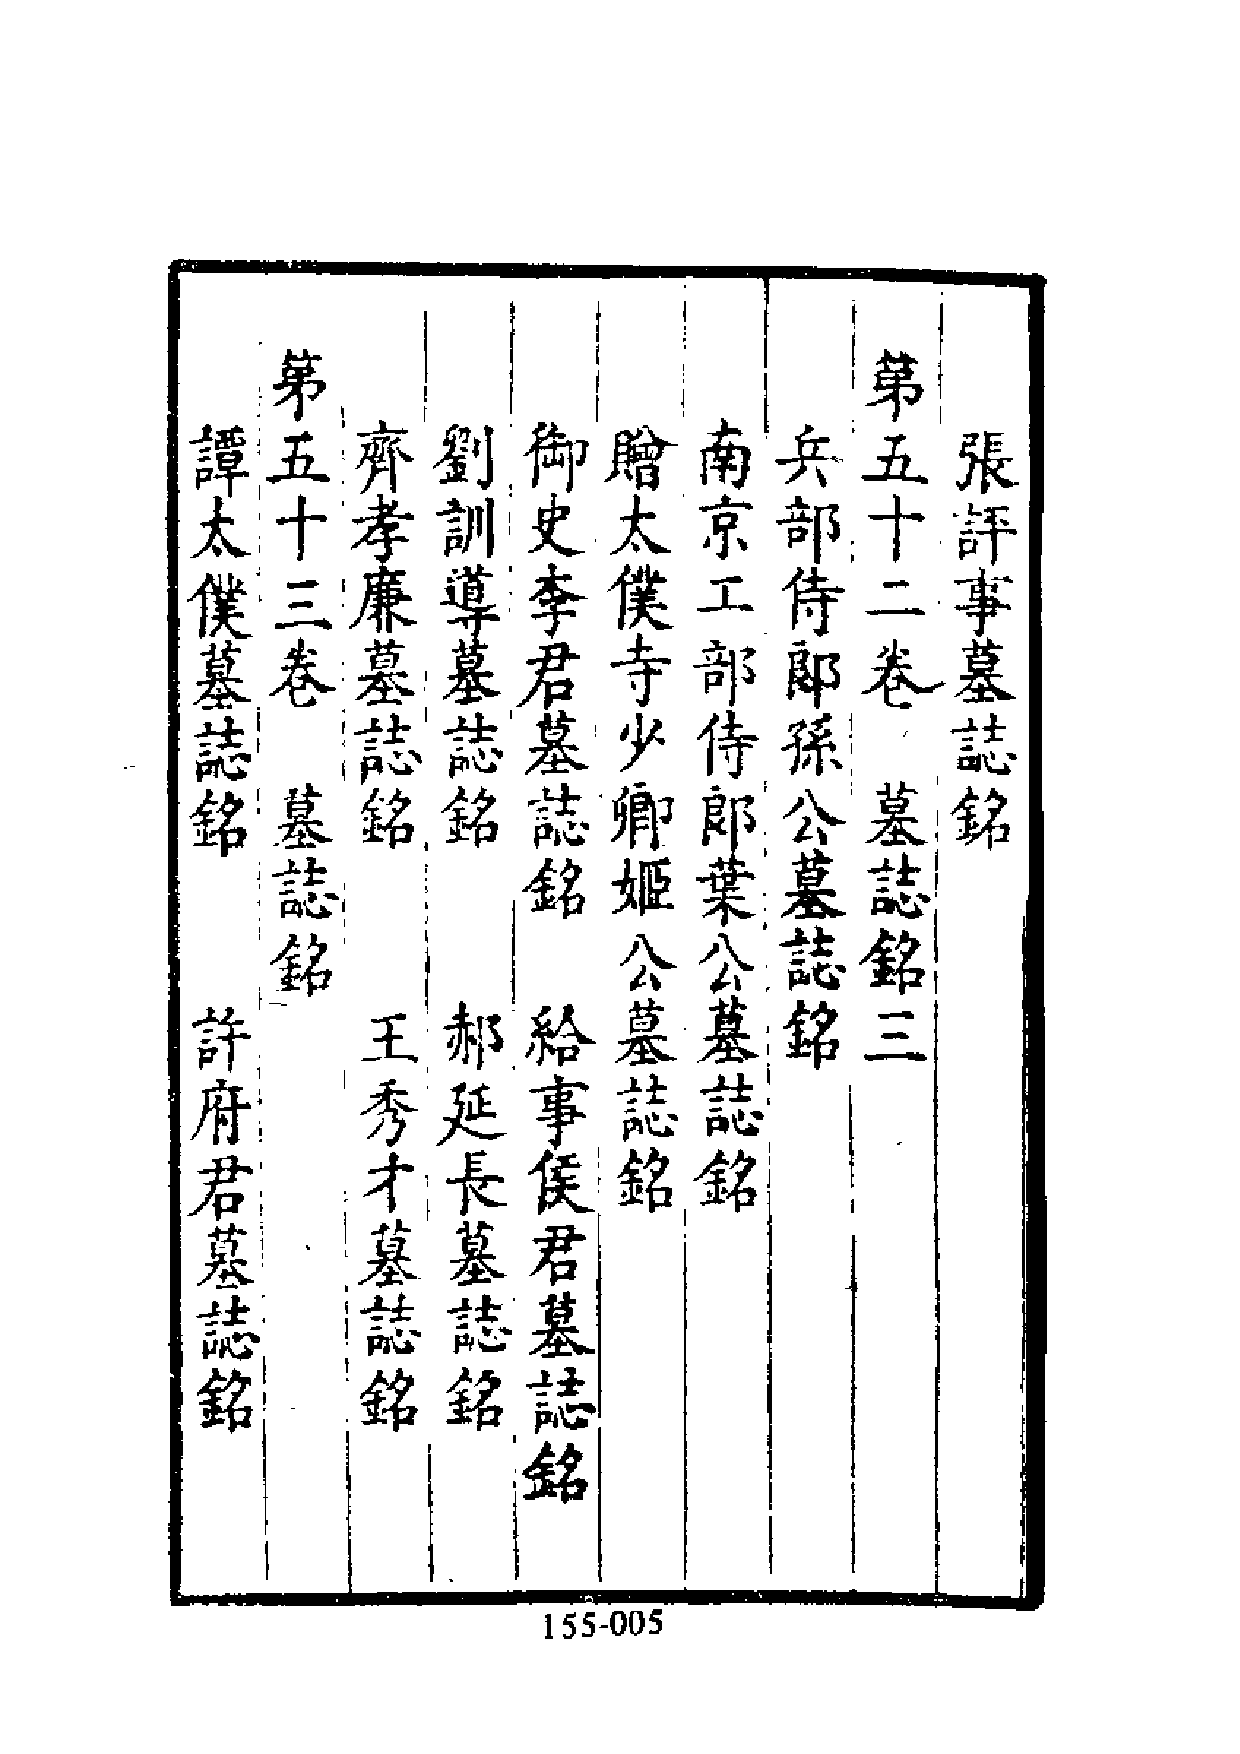 張評事墓誌銘
第五十二卷　墓誌銘三
兵部侍郎孫公墓誌銘
南京工部侍郎葉公墓誌銘
贈太僕寺少卿姬公墓誌銘
御史李君墓誌銘　給事侯君墓誌銘
劉訓導墓誌銘　郝延長墓誌銘
齊孝廉墓誌銘　王秀才墓誌銘
第五十三卷　墓誌銘
譚太僕墓誌銘　許府君墓誌銘
155-005